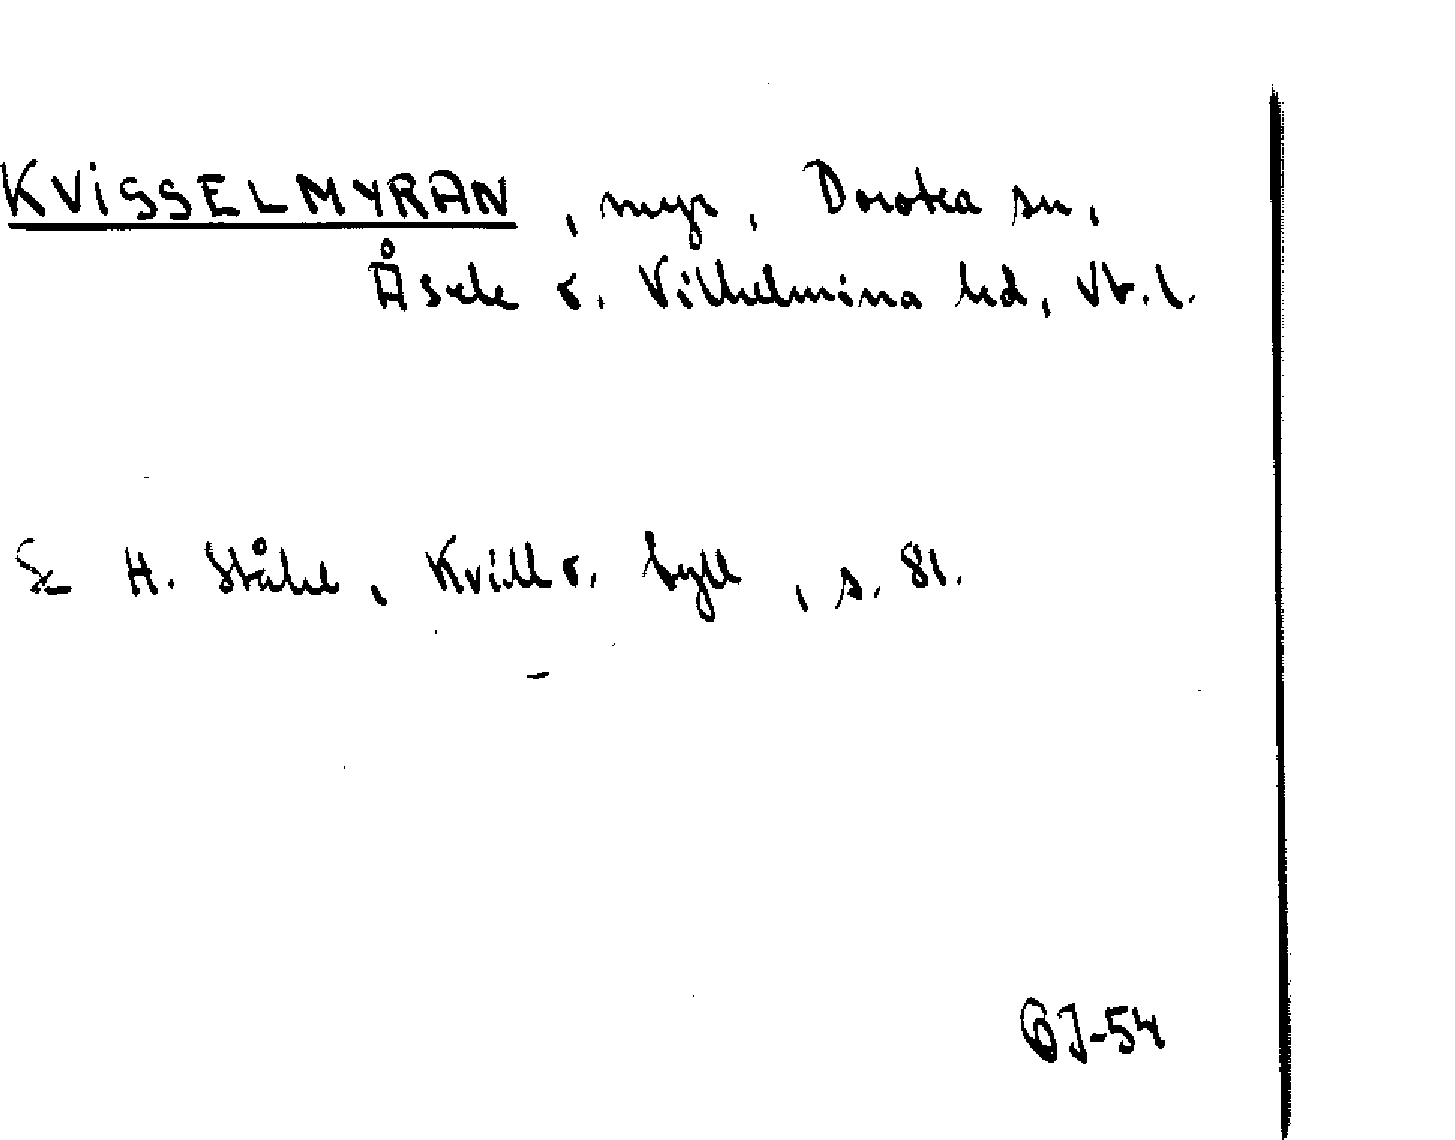 KVISSELMYRAN, myr, Dorotea sn,
Åsele o. Vilhelmina hd, Vb. l.
Se H. Ståhl, Kvill o. tyll, s. 81.
OJ-54